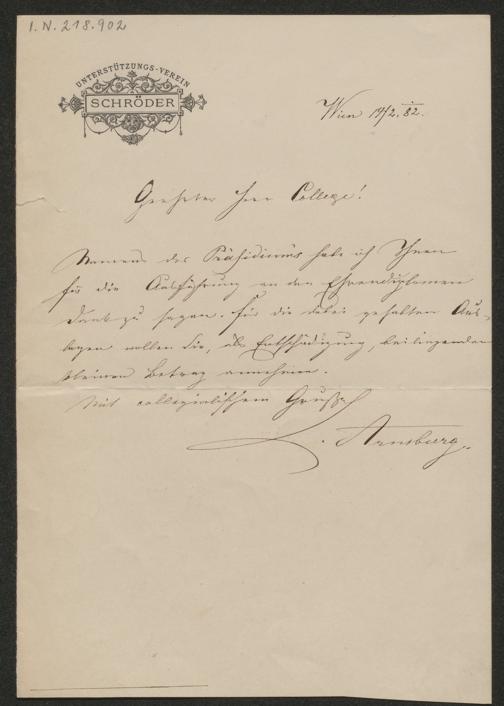 I.N. 218.902
UNTERSTÜTZUNGS-VEREIN
SCHRÖDER
Wien 14/2. 82.
Geehrter Herr College!
Namens des Präsidiums habe ich Ihnen
für die Ausführung an den Ehrendiplomen
Dank zu sagen. Für die dabei gehabten Aus-
lagen wollen Sie, als Entschädigung, beiliegenden
kleinen Betrag annehmen.
Mit collegialischem Grusse
L. Arnsburg.